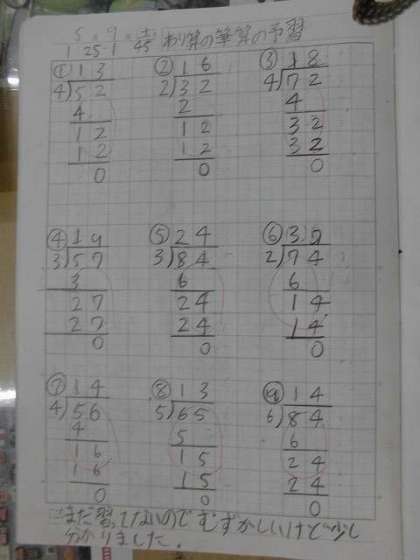 わり算の筆算の予習
① 13 ② 16 ③ 18
4)52 2)32 4)72
4 2 4
12 12 32
12 12 32
0 0 0
④ 19 ⑤ 24 ⑥ 39
3)57 3)84 2)74
3 6 6
27 24 14
27 24 14
0 0 0
⑦ 14 ⑧ 13 ⑨ 14
4)56 5)65 6)84
4 5 6
16 15 24
16 15 24
0 0 0
まだ習ってないのでむずかしいけど少し
分かりました。